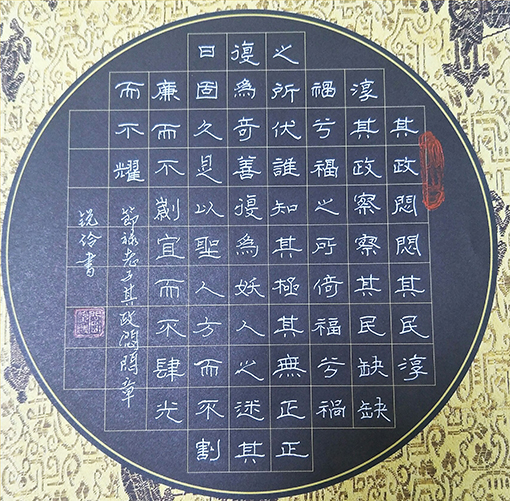 其政悶悶其民淳
淳其政察察其民缺缺
禍兮福之所倚福兮禍
之所伏誰知其極其無正正
復為奇善復為妖人之迷其
日固久是以聖人方而不割
廉而不劌宜而不肆光
而不耀
節錄老子其政悶悶章
書